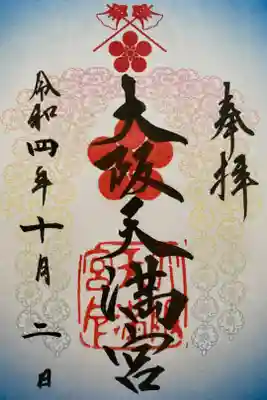 奉拝
大阪天満宮
令和四年十月二日